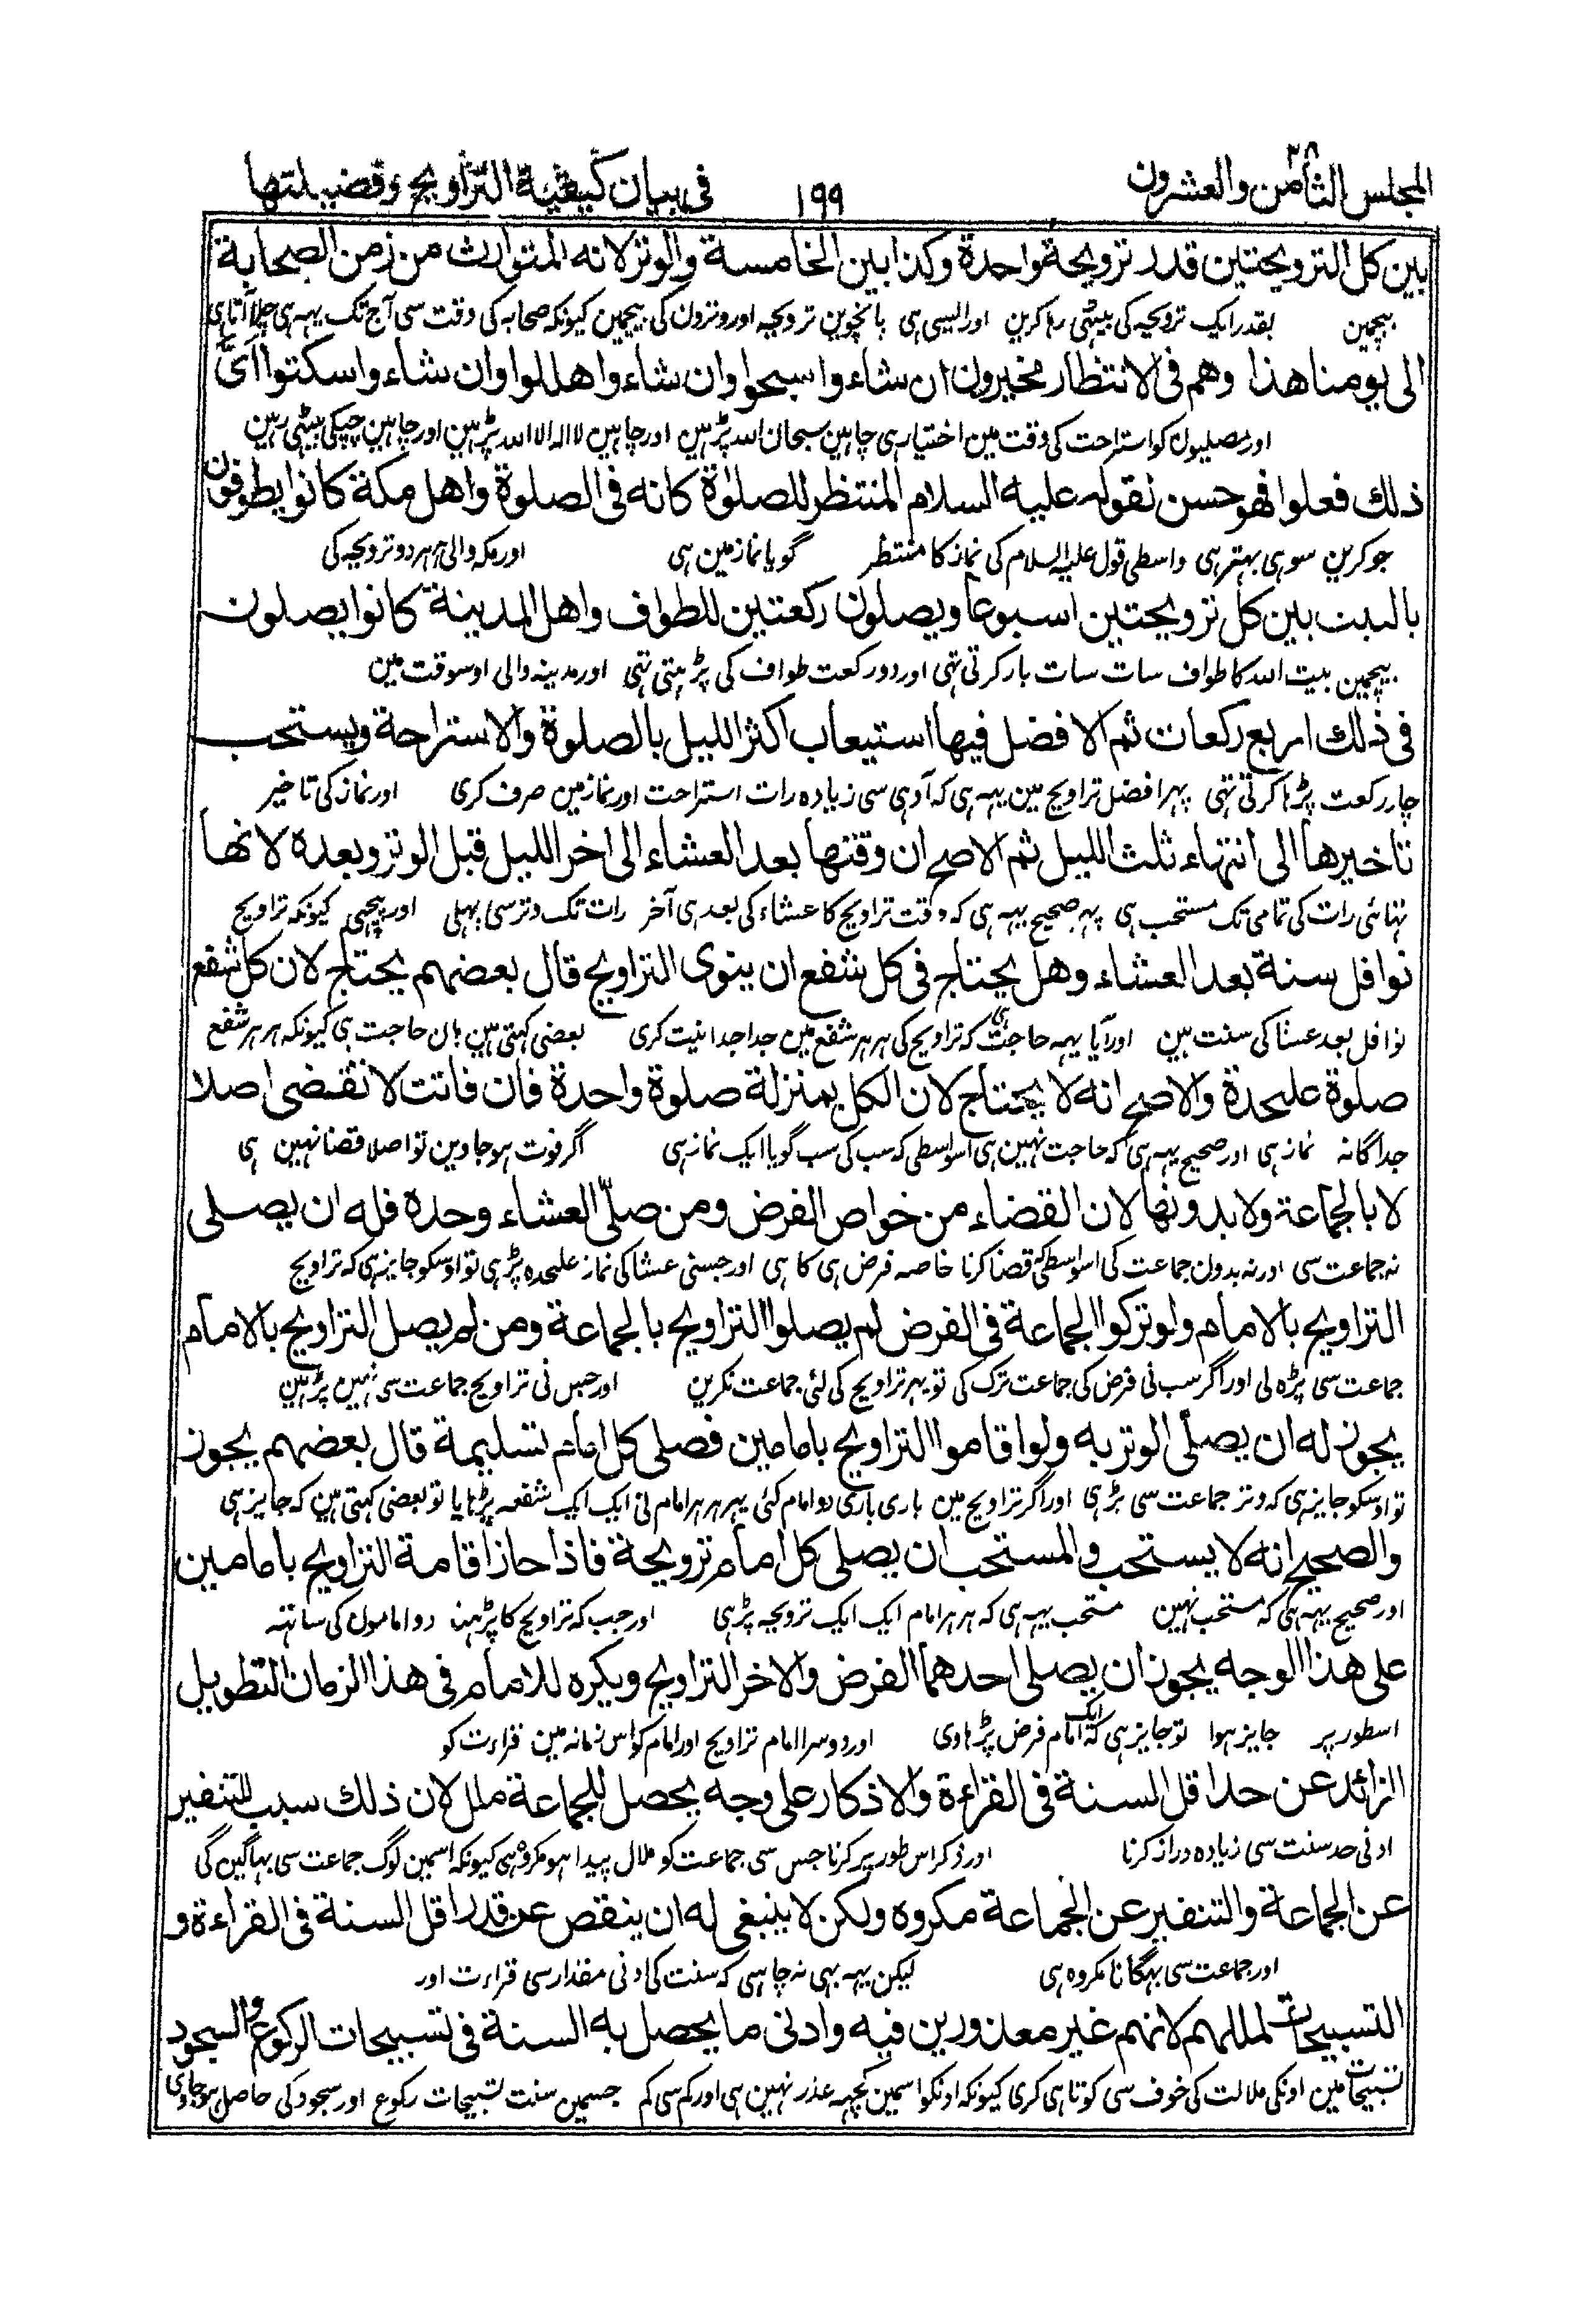 المجلس الثامن والعشرون ۲۸
۱۹۹
فی بیان کیفیة التراویح وفضیلتها
بین کل الترویحتین قدر ترویحة واحدة وکذا بین الخامسة والوتر لانه المتوارث من زمن الصحابة
بیچمین بقدر ایک ترویحہ کی بیٹھی رہا کرین اور ایسی ہی پانچوین ترویحہ اور وترون کی بیچمین کیونکہ صحابہ کی وقت سی آج تک یہہ ہی چلا آتا ہی
الی یومنا هذا وهم فی الانتظار مخیرون ان شاء وا سبحوا وان شاء وا هللوا وان شاء وا سکتوا ایّ
اور مصلیون کو استراحت کی وقت مین اختیار ہی چاہین سبحان اللہ پڑہین اور چاہین لا الہ الا اللہ پڑہین اور چاہین چپکی بیٹھی رہین
ذلك فعلوا فهو حسن لقوله علیه السلام المنتظر للصلوٰة کانه فی الصلوة واهل مکة کانوا یطوفون
جو کرین سو ہی بہتر ہی واسطی قول علیہ السلام کی نماز کا منتظر گویا نماز مین ہی اور مکہ والی ہر ہر دو ترویحہ کی
بالبیت بین کل ترویحتین اسبوعا ویصلون رکعتین للطواف واهل المدینة کانوا یصلون
بیچمین بیت اللہ کا طواف سات سات بار کرتی تہی اور دو رکعت طواف کی پڑہتی تہی اور مدینہ والی اوسوقت مین
فی ذلك اربع رکعات ثم الافضل فیها استیعاب اکثر اللیل بالصلوة والاستراحة ویستحب
چار رکعت پڑہا کرتی تہی پہر افضل تراویح مین یہہ ہی کہ آدہی سی زیادہ رات استراحت اور نماز مین صرف کری اور نماز کی تاخیر
تاخیرها الی انتهاء ثلث اللیل ثم الاصح ان وقتها بعد العشاء الی اخر اللیل قبل الوتر وبعده لانها
تہائی رات کی تمامی تک مستحب ہی پہر صحیح یہہ ہی کہ وقت تراویح کا عشاء کی بعد ہی آخر رات تک وتر سی پہلی اور پیچہی کیونکہ تراویح
نوافل سنة بعد العشاء وهل یحتاج فی کل شفع ان ینوی التراویح قال بعضهم یحتاج لان کل شفع
نوافل بعد عشا کی سنت ہین اور آیا یہہ حاجت ہی کہ تراویح کی ہر ہر شفع مین جدا جدا نیت کری بعضی کہتی ہین ہان حاجت ہی کیونکہ ہر ہر شفع
صلوة علیحدة والاصح انه لا یحتاج لان الکل بمنزلة صلوة واحدة فان فاتت لا تقضی اصلا
جداگانہ نماز ہی اور صحیح یہہ ہی کہ حاجت نہین ہی اسواسطی کہ سب کی سب گویا ایک نماز ہی اگر فوت ہو جاوین تو اصلا قضا نہین ہی
لا بالجماعة ولا بدونها لان القضاء من خواص الفرض ومن صلّی العشاء وحده فله ان یصلی
نہ جماعت سی اور نہ بدون جماعت کی اسواسطی کہ قضا کرنا خاصہ فرض ہی کا ہی اور جسنی عشا کی نماز علیحدہ پڑہی تو اوسکو جایز ہی کہ تراویح
التراویح بالامام ولو ترکوا الجماعة فی الفرض لم یصلوا التراویح بالجماعة ومن لم یصل التراویح بالامام
جماعت سی پڑہ لی اور اگر سب نی فرض کی جماعت ترک کی تو پہر تراویح کی لئی جماعت نکرین اور جس نی تراویح جماعت سی نہین پڑہین
یجوز له ان یصلّی الوتر به ولو اقاموا التراویح بامامین فصلی کل امام تسلیمة قال بعضهم یجوز
تو اوسکو جایز ہی کہ وتر جماعت سی پڑہی اور اگر تراویح مین باری باری دو امام کئی پہر ہر ہر امام نی ایک ایک شفعہ پڑہایا تو بعضی کہتی ہین کہ جایز ہی
والصحیح انه لا یستحب والمستحب ان یصلی کل امام ترویحة فاذا جاز اقامة التراویح بامامین
اور صحیح یہہ ہی کہ مستحب نہین مستحب یہہ ہی کہ ہر ہر امام ایک ایک ترویحہ پڑہی اور جب کہ تراویح کا پڑہنا دو اماموں کی ساتہہ
علی هذا الوجه یجوز ان یصلی احدهما الفرض والاخر التراویح ویکره للامام فی هذا الزمان التطویل
اسطور پر جایز ہوا تو جایز ہی کہ ایک امام فرض پڑہاوی اور دوسرا امام تراویح اور امام کو اس زمانہ مین قراءت کو
الزائد عن حد اقل السنة فی القراءة والاذکار علی وجه یحصل للجماعة ملل لان ذلك سبب للتنفیر
ادنی حد سنت سی زیادہ دراز کرنا اور ذکر اس طور پر کرنا جس سی جماعت کو ملال پیدا ہو مکروہ ہی کیونکہ اسمین لوگ جماعت سی بہاگین گی
عن الجماعة والتنفیر عن الجماعة مکروه ولکن لا ینبغی له ان ینقص عن قدر اقل السنة فی القراءة و
اور جماعت سی بہگانا مکروہ ہی لیکن یہہ بہی نہ چاہیی کہ سنت کی ادنی مقدار سی قراءت اور
التسبیحات لمللهم لانهم غیر معذورین فیه وادنی ما یحصل به السنة فی تسبیحات الرکوع والسجود
تسبیحات مین اونکی ملالت کی خوف سی کوتاہی کری کیونکہ اونکو اسمین کچہہ عذر نہین ہی اور کم سی کم جسمین سنت تسبیحات رکوع اور سجود کی حاصل ہو جاوی